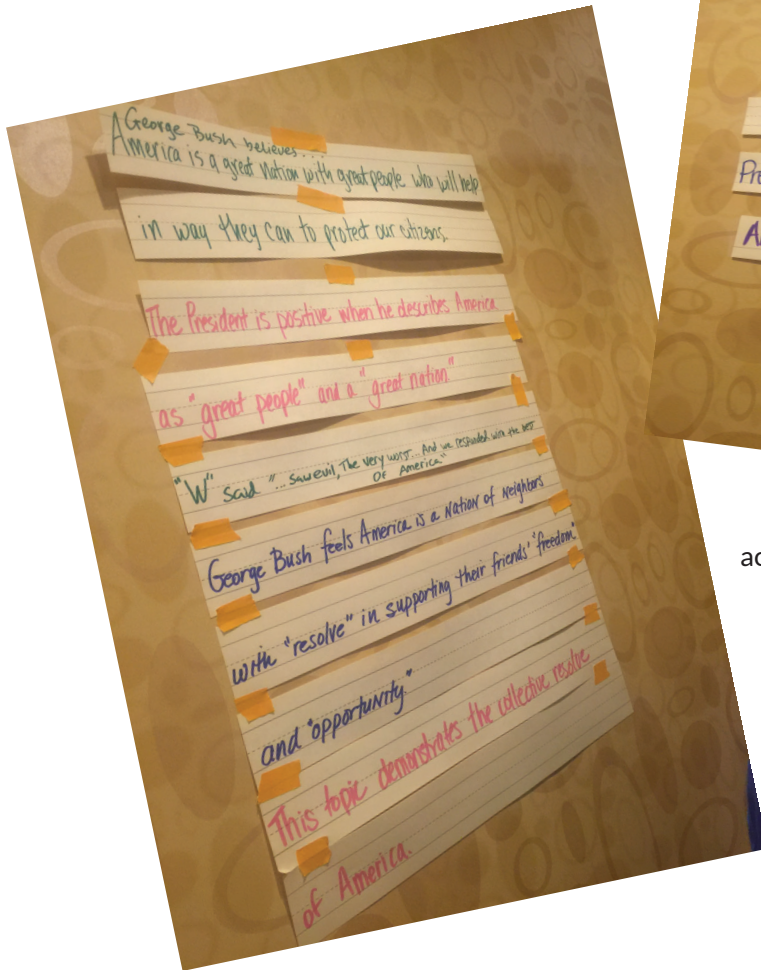 George Bush believes...
America is a great nation with great people who will help
in way they can to protect our citizens.
The President is positive when he describes America
as "great people" and a "great nation"
"W" said "... saw evil, The very worst... And we responded with the best
Of America"
George Bush feels America is a Nation of Neighbors
with "resolve" in supporting their friends' "freedom"
and "opportunity."
This topic demonstrates the collective resolve
of America.